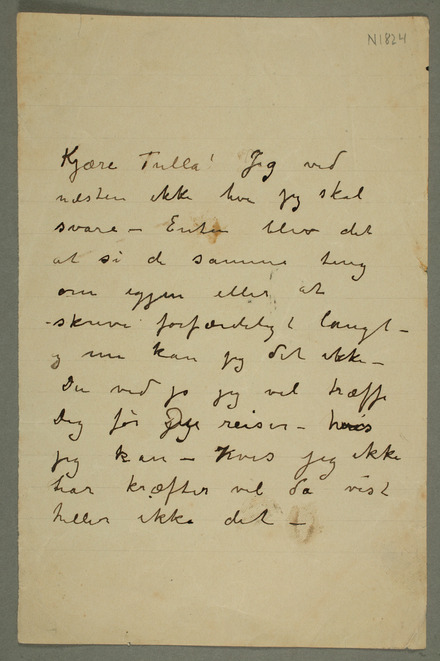 N1824
Kjære Tulla! Jeg ved
næsten ikke hva jeg skal
svare – Enten blir det
at si de samme ting
om igjen eller at
skrive forfærdeligt langt –
og nu kan jeg det ikke –
Du ved jo jeg vil træffe
Dig før jeg reiser – hvis
jeg kan – Hvis jeg ikke
har kræfter vil du vist
heller ikke det –